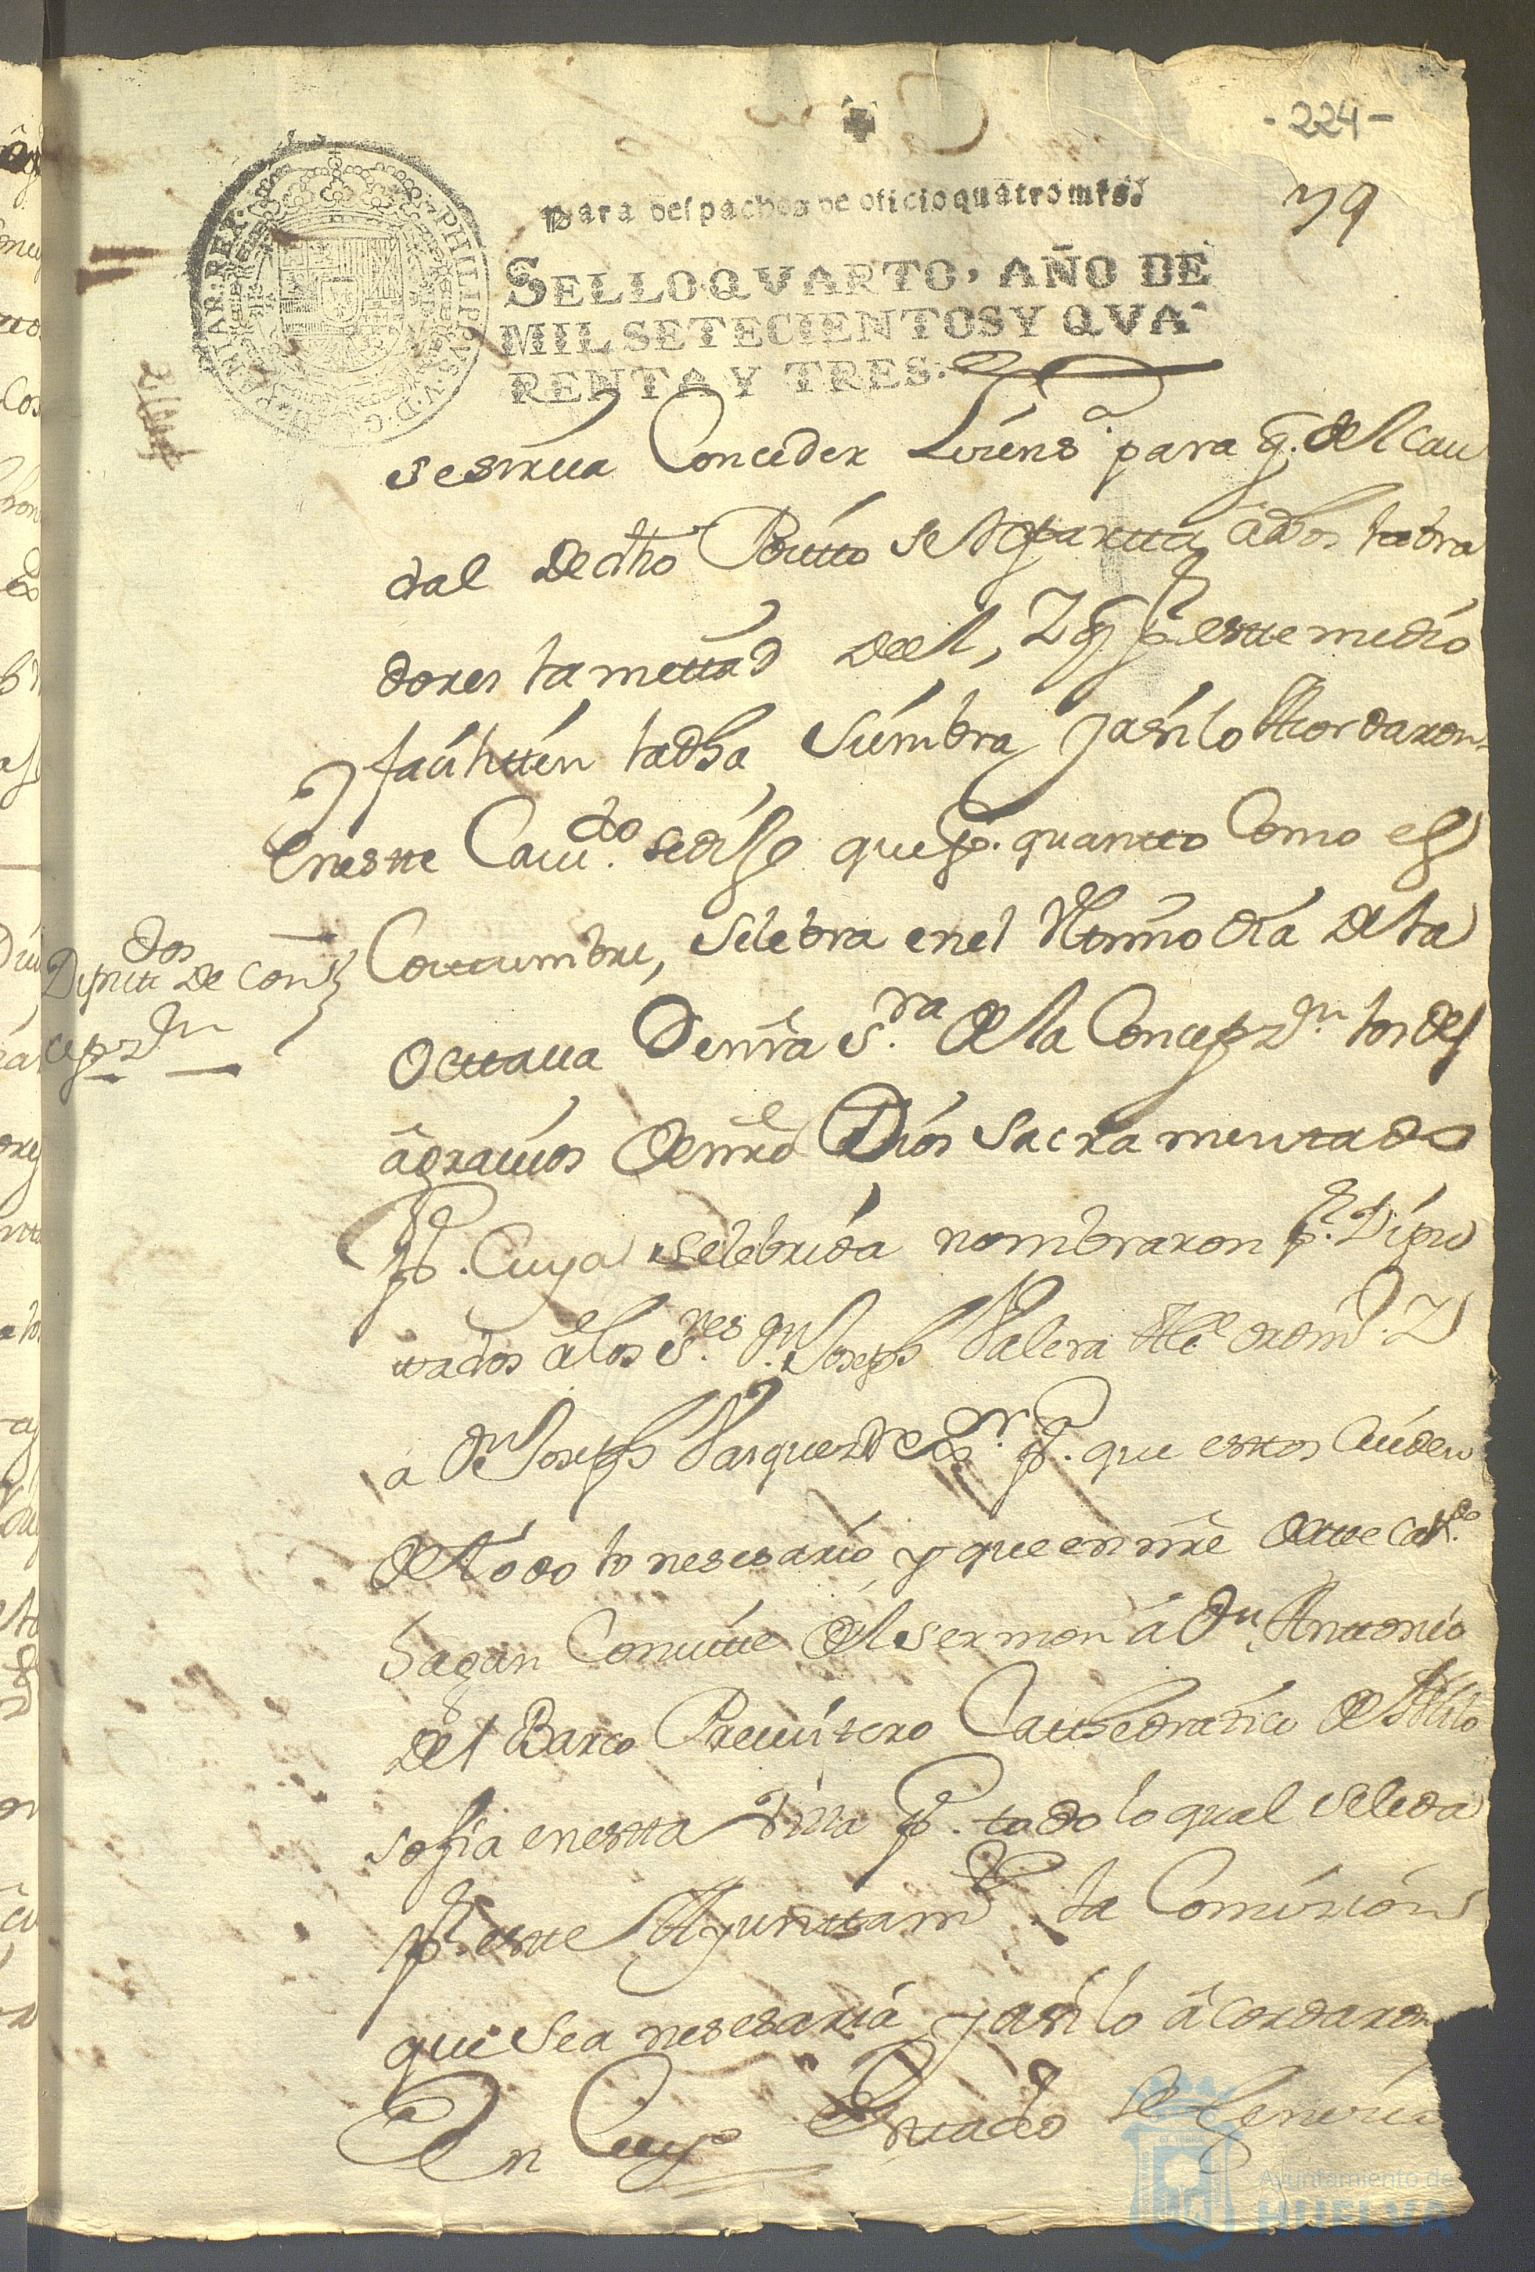 - 224 -
79
Para despachos de oficio quatro mrs.
SELLO QVARTO, AÑO DE
MIL SETECIENTOS Y QVA-
RENTA Y TRES.
PHILIPPVS V D G HISPANIAR REX
se sirua Conceder Lisens.a para q. del cau
dal de dho Positto se Reparta a dhos labra
dores la mettad del, Y q pr. este medio
fasilitten la dha Siembra, y asi lo Acordaron
En este Cauildo. se dijo que pr. quantto Como es
Costtumbre, selebra en el Ultimo dia de la
Octtaua de nra Sra. de la Concepzn. los des
agrauios de nro Dios Sacramentado
pa. Cuya selebrida nombraron pr. Dipu
tados a los Sres. Dn. Joseph Valera Alce ordino. Y
a Dn Joseph Vasquez Regor. pa. que estos Cuiden
de todo lo nesesario, y que en nre de este Cauo.
hagan Conuitte del sermon á Dn. Anttonio
del Barco Presuitero Cathedratico de Philo
sofia en estta Villa pa. todo lo qual se le da
pr. este Ayunttamto. la Comision
que sea nesesaria y asi lo acordaron
En Cuyo Esttado
Diputtdos de Con
cepzn
Ayuntamiento de
HUELVA